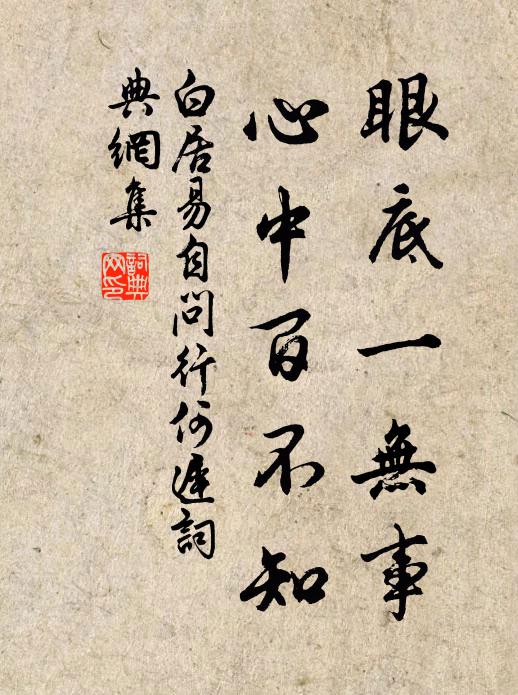 眼底一無事
心中百不知
白居易自問行何遲詞
典網集
詞典網印